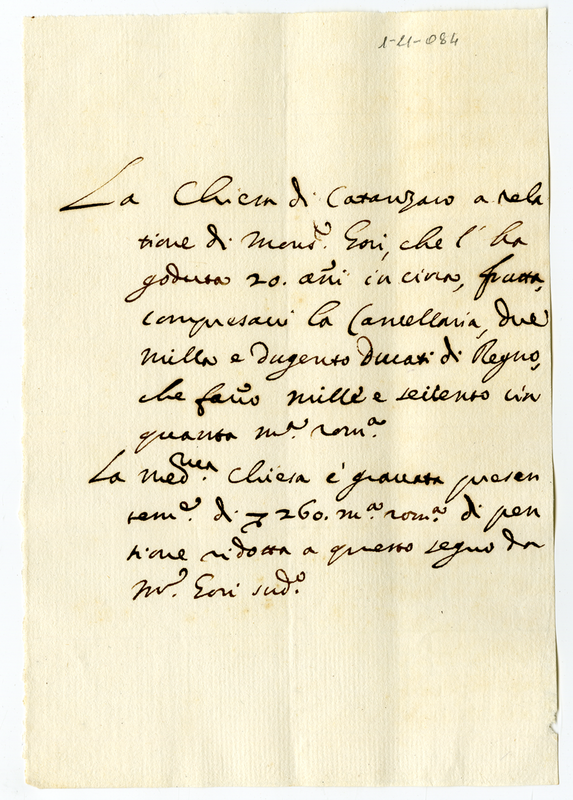 1-21-084
La Chiesa di Catanzaro a rela
tione di Mons.r Gori, che l'ha
goduta 20. añi in circa, frutta,
compresaui la Cancellaria, due
milla e dugento Ducati di Regno,
che fañõ mille e seicento cin
quanta m.a rom.a
La med.ma Chiesa è grauata presen
tem.e di 260. m.a rom.a di pen
tione ridotta a questo segno da
M.r Gori sud.o